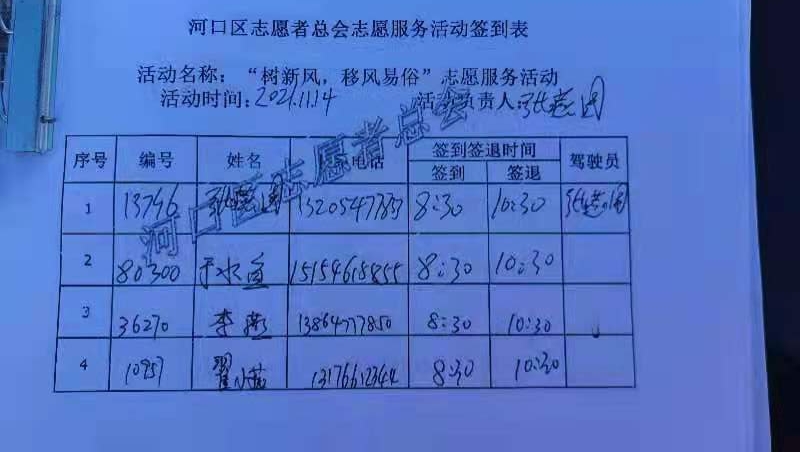 河口区志愿者总会志愿服务活动签到表
活动名称：“树新风，移风易俗”志愿服务活动
活动时间：2021.11.14 活动负责人：张
序号 编号 姓名 电话 签到签退时间 驾驶员
签到 签退
1 13746 张 8:30 10:30 张
2 80300 于水 15154615855 8:30 10:30
3 36270 李燕 13864777850 8:30 10:30
4 10957 翟小 13176612344 8:30 10:30
河口区志愿者总会